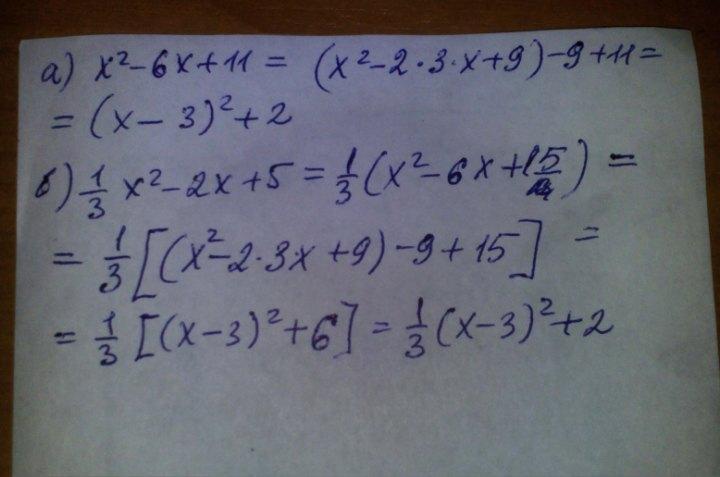 а) x²-6x+11 = (x²-2·3·x+9)-9+11=
= (x-3)²+2
б) 1/3 x²-2x+5 = 1/3 (x²-6x+15) =
= 1/3 [(x²-2·3x+9)-9+15] =
= 1/3 [(x-3)²+6] = 1/3 (x-3)²+2